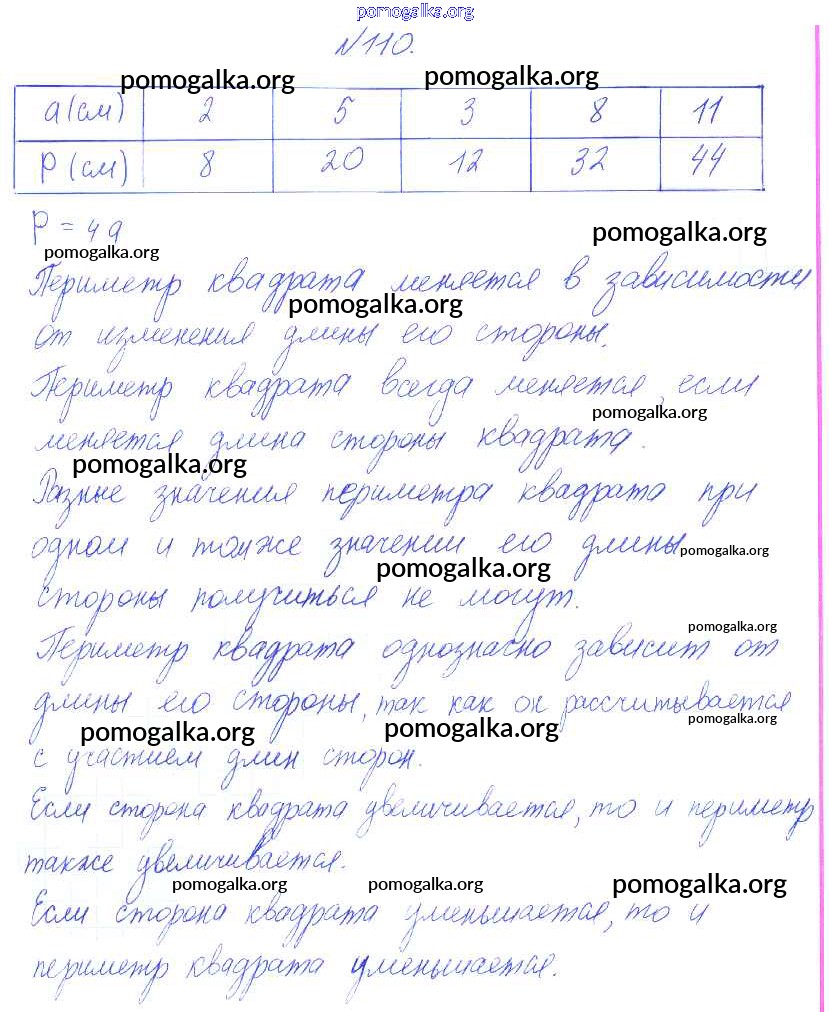 pomogalka.org
№110.
pomogalka.org pomogalka.org
a(см) 2 5 3 8 11
P(см) 8 20 12 32 44
P = 4a
pomogalka.org
pomogalka.org
Периметр квадрата меняется в зависимости
pomogalka.org
от изменения длины его стороны.
Периметр квадрата всегда меняется, если
pomogalka.org
меняется длина стороны квадрата.
pomogalka.org
Разные значения периметра квадрата при
одном и том же значении его длины
pomogalka.org
pomogalka.org
стороны получиться не могут.
pomogalka.org
Периметр квадрата однозначно зависит от
длины его стороны, так как он рассчитывается
pomogalka.org
pomogalka.org pomogalka.org
с участием длин сторон.
Если сторона квадрата увеличивается, то и периметр
также увеличивается.
pomogalka.org pomogalka.org pomogalka.org
Если сторона квадрата уменьшается, то и
периметр квадрата уменьшается.